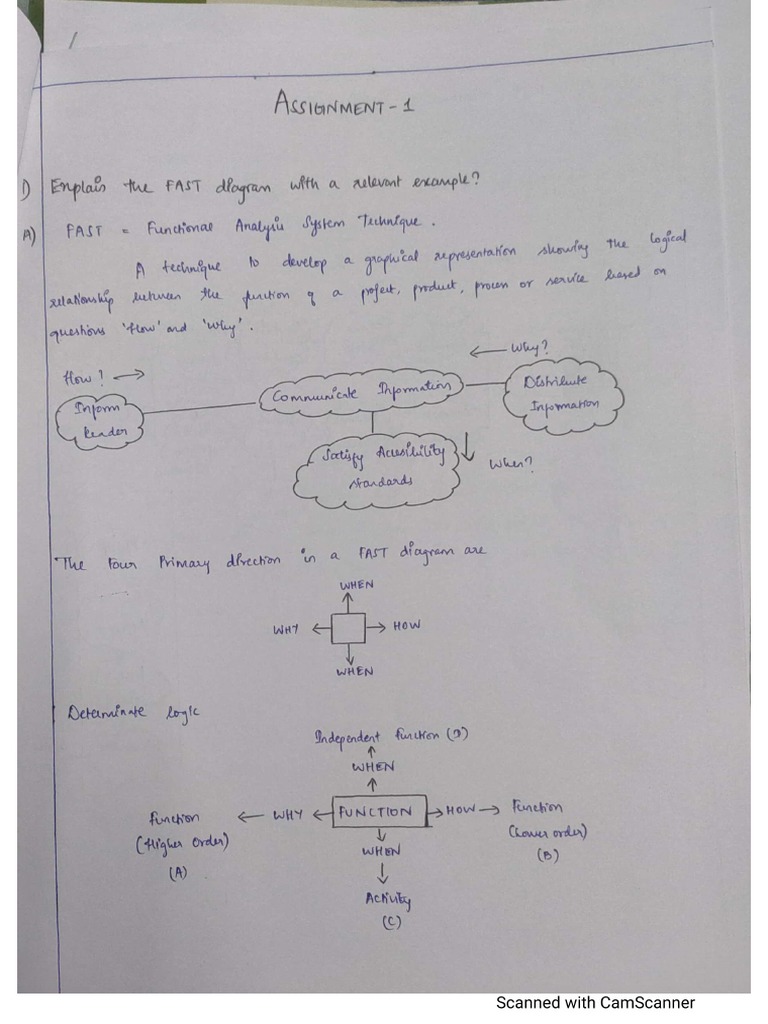 ASSIGNMENT-1
1) Explain the FAST diagram with a relevant example?
A) FAST = Functional Analysis System Technique.
A technique to develop a graphical representation showing the logical
relationship between the function of a project, product, process or service based on
questions 'How' and 'Why'.
How? → ← Why?
Inform Reader
Communicate Information
Distribute Information
Satisfy Accesibility standards
When?
The Four Primary direction in a FAST diagram are
WHEN
WHY HOW
WHEN
Determinate logic
Independent function (D)
WHEN
Function ← WHY ← FUNCTION → HOW → Function
(Higher Order) WHEN (Lower order)
(A) (B)
Activity
(C)
Scanned with CamScanner